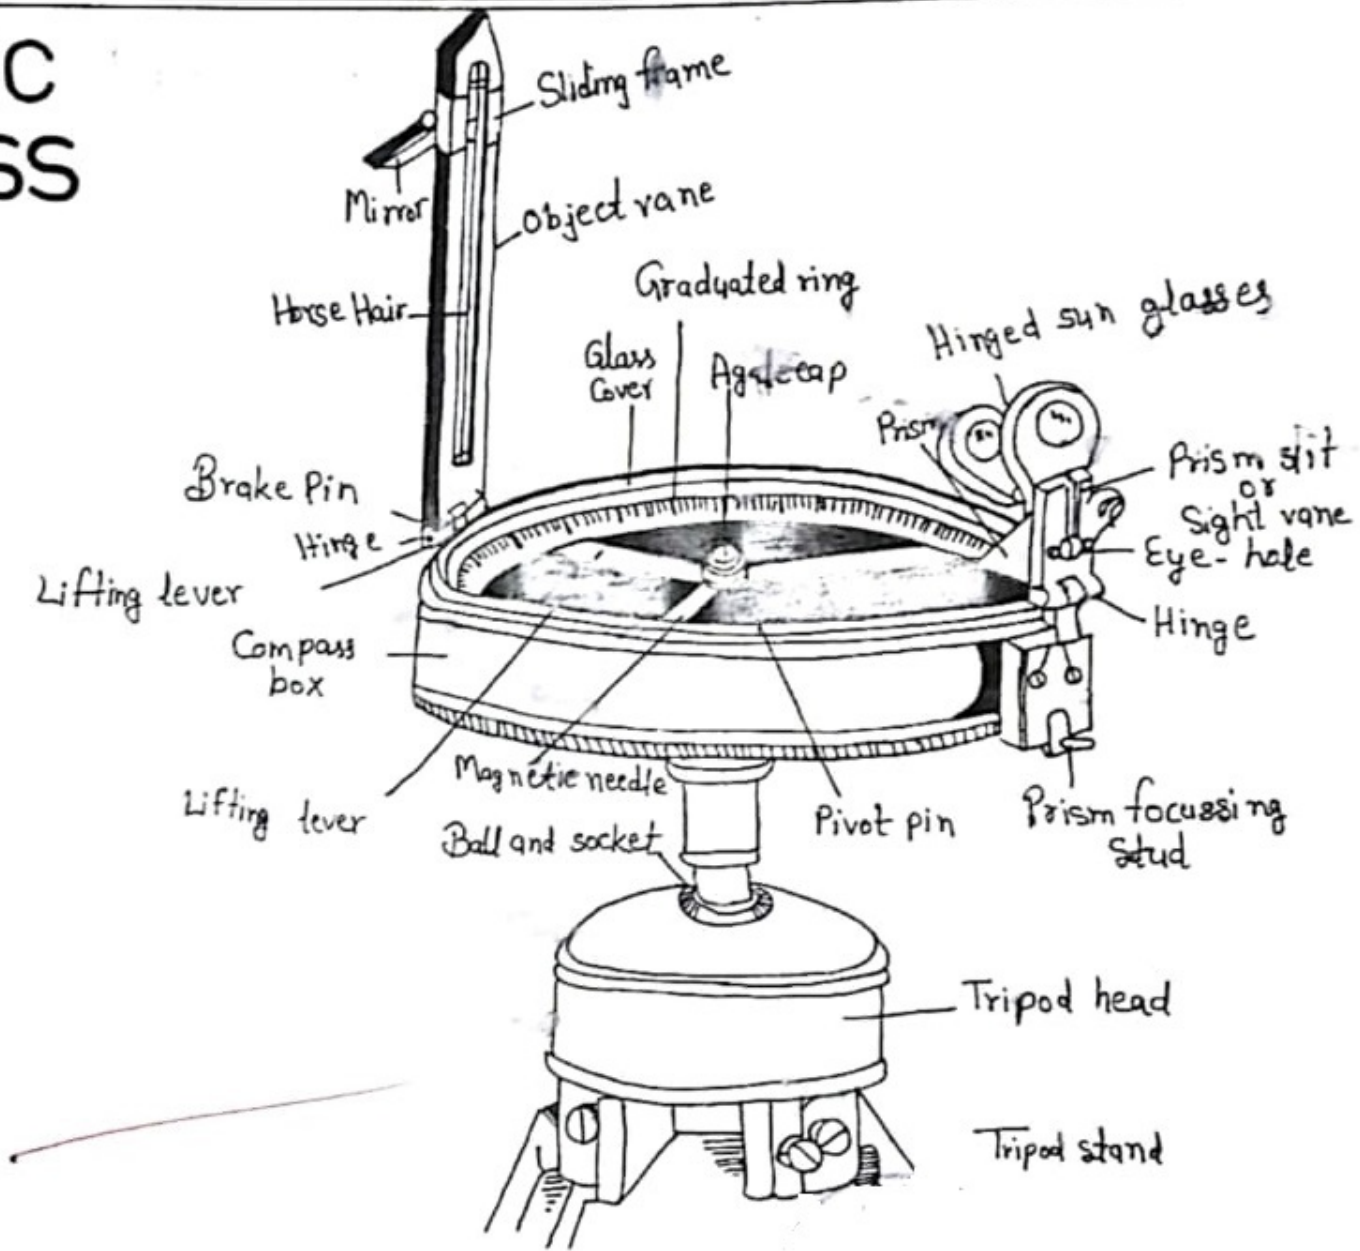 C
SS
Sliding frame
Mirror
Object vane
Horse Hair
Graduated ring
Glass
Cover
Agate cap
Hinged sun glasses
Prism
Prism slit
or
Sight vane
Eye-hole
Hinge
Brake Pin
Hinge
Lifting lever
Compass
box
Lifting lever
Magnetic needle
Ball and socket
Pivot pin
Prism focussing
stud
Tripod head
Tripod stand